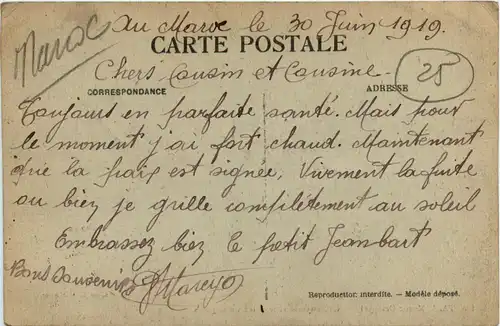 Maroc
Au Maroc le 30 Juin 1919.
CARTE POSTALE
Chers Cousin et Cousine -
25
CORRESPONDANCE
ADRESSE
Toujours en parfaite santé. Mais pour
le moment j'ai fort chaud. Maintenant
que la paix est signée, Vivement la fuite
ou bien je grille complètement au soleil
Embrassez bien le petit Jeanbart
Bons Souvenirs
Reproduction interdite. — Modèle déposé.